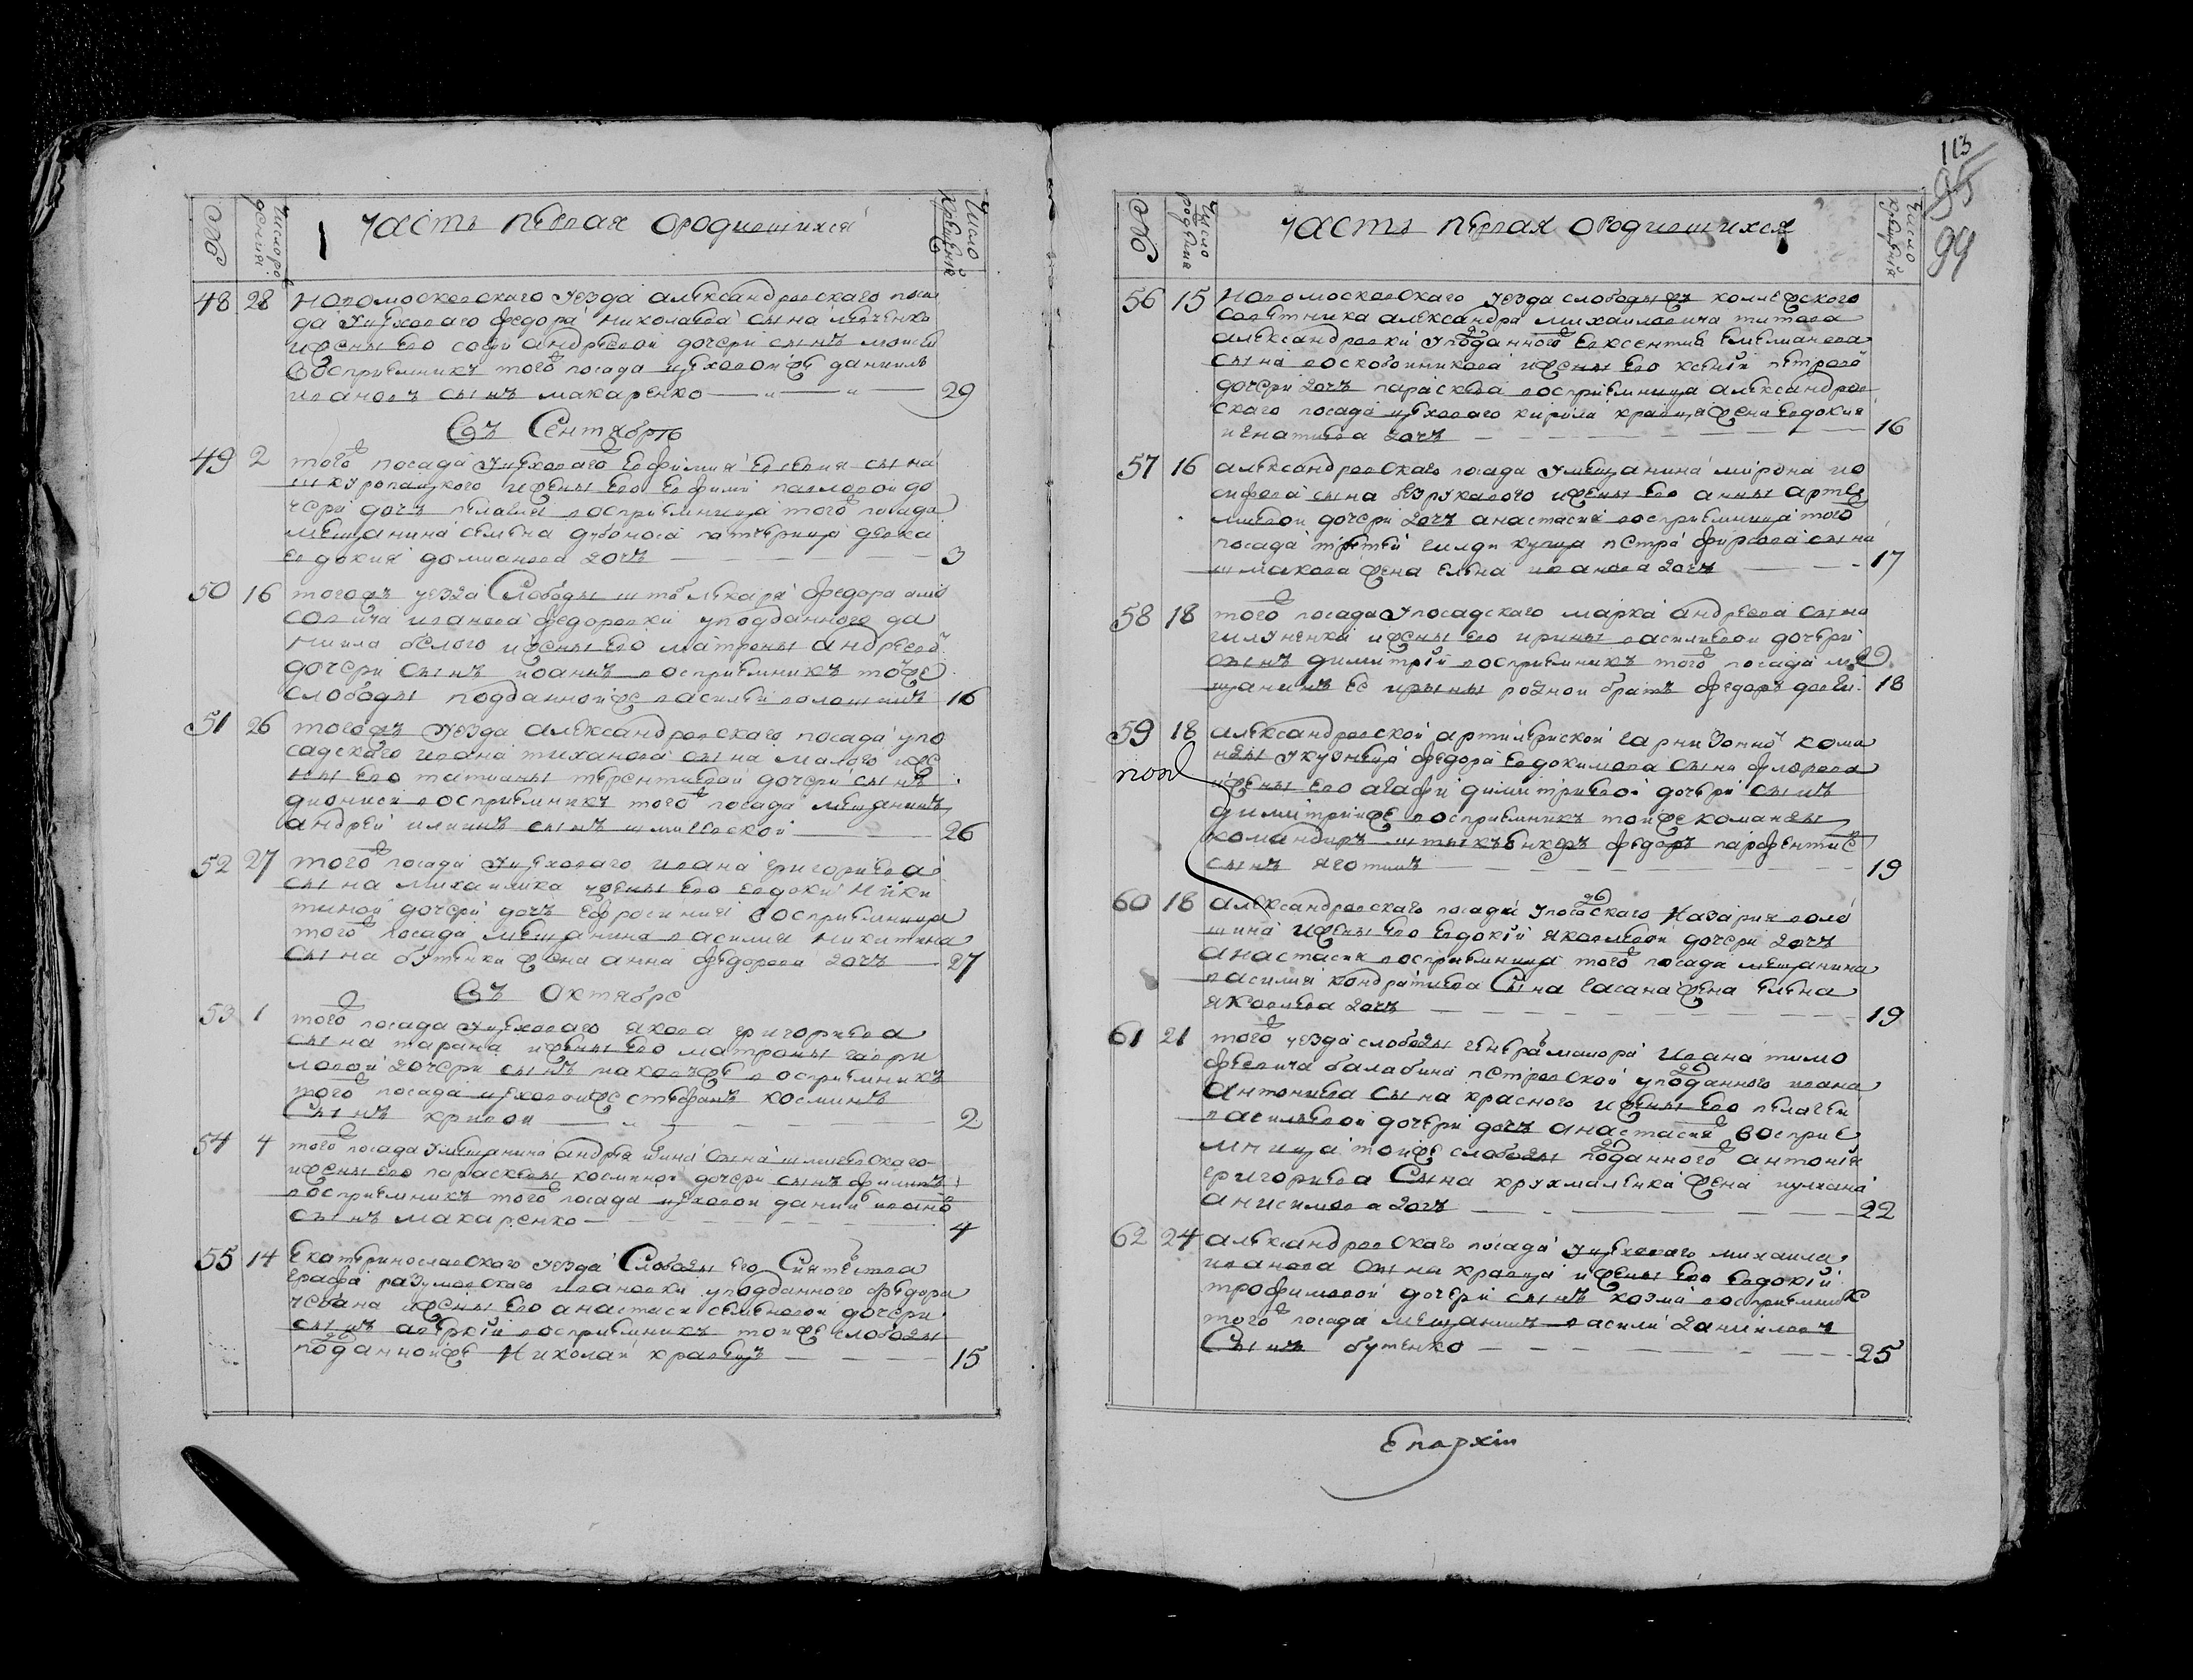 №
Число рож
дения
Часть первая ородившихся
Число
крещения
48 28 Новомосковскаго уезда александровскаго поса
да уцеховаго федора николаева сына левченко
ижены его софи андреевой дочери сынъ моисей
восприемникъ того посада цеховойже даниилъ
ивановъ сынъ макаренко 29
Въ Сентябре
49 2 того посада уцеховаго евфимия евсевия сына
шкуропацкого ижены его евфимии павловой до
чери дочь пелагия восприемница того посада
мещанина семена дубоноса патчерица девка
евдокия домианова дочь 3
50 16 тогожъ уезда Слободы штаблекаря федора амо
совича иванова федоровки уподданного да
ниила белого ижены его матроны андреевой
дочери сынъ иоанъ восприемникъ тойже
слободы подданнойже василий волошинъ 16
51 26 тогожъ уезда александровскаго посада упо
садскаго ивана тиханова сына малого иже
ны его татианы терентиевой дочери сынъ
дионисий восприемникъ того посада мещанинъ
андрей илиинъ сынъ 26
52 27 того посада уцеховаго ивана григориева
сына михаилика ижены его евдокии ники
тиной дочери дочь ефросиния восприемница
того посада мещанина василия никитина
сына бутенка жена анна федорова дочь 27
Въ Октябре
53 1 того посада уцеховаго якова григориева
сына тарана ижены его матроны гаври
ловой дочери сынъ иаковъже восприемникъ
того посада цеховойже стефанъ косминъ
Сынъ кривой 2
54 4 того посада умещанина андрея илина сына
ижены его парасковы косминой дочери сынъ филипъ
восприемникъ того посада цеховой даниил иванов
сынъ макаренко 4
55 14 Екатеринославскаго уезда Слободы его Сиятества
графа разумовскаго ивановки уподданного федора
чебана ижены его анастаси семеновой дочери
сынъ аверкий восприемникъ тойже слободы
подданнойже Николай кравецъ 15
113
95
94
№
Число
рождения
Часть первая ородившихся
Число
крещения
56 15 Новомосковскаго уезда слободыжъ коллежского
советника александра михаиловича титова
александровки уподданного евксентия емелианова
сына воскобоиникова ижены его ксении петровой
дочери дочь парасковиа восприемница александров
скаго посада цеховаго кирила кравца жена евдокия
игнатиева дочь 16
57 16 александровскаго посада умещанина мирона ио
сифова сына безрукавого ижены его анны арте
миевой дочери дочь анастасия восприемница того
посада третей гилди купца петра фирсова сына
шмакова жена елена иванова дочь 17
58 18 того посада упосадскаго марка андреева сына
гилуненка ижены его ирины василиевой дочери
сынъ димитрий восприемникъ того посада ме
щанинъ ее ирыны родной братъ федоръ 18
59 18 александровской артилериской гарнизонной кома
нды укузнеца федора евдокимова сына флорова
ижены его агафи димитриевой дочери сынъ
димитрийже восприемникъ тойже команды
командиръ штыкъюнкеръ федоръ парфентие
сынъ яготинъ 19
60 18 александровскаго посада упосадскаго Назария воло
шина ижены его евдокии яковлевой дочери дочь
анастасия восприемница того посада мещанина
василия кондратиева Сына гасана жена елена
яковлева дочь 19
61 21 того уезда слободы генерамаиора Ивана тимо
феевича балабина петровской уподанного ивана
Антониева сына красного ижены его пелагеи
василиевой дочери дочь анастасия восприе
мница тойже слободы поданного антония
григориева Сына крухмаленка жена
анисимова дочь 22
62 24 александровскаго посада уцеховаго михаила
иванова сына кравца ижены его евдокий
трофимовой дочери сынъ козма восприемник
того посада мещанинъ василий даниилович
Сынъ бутенко 25
Епархіи